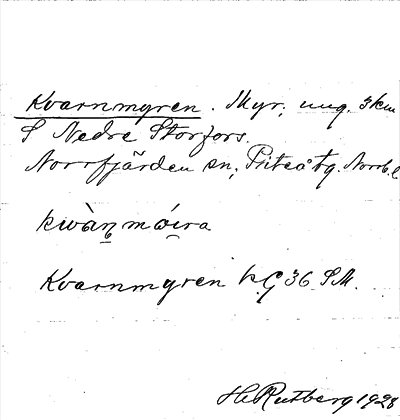 Kvarnmyren. Myr, ung. 3 km
S Nedre Storfors.
Norrfjärden sn, Piteå tg. Norrb. l
kwàn̠ móịra
Kvarnmyren hç 36 SM.
H Rutberg 1928